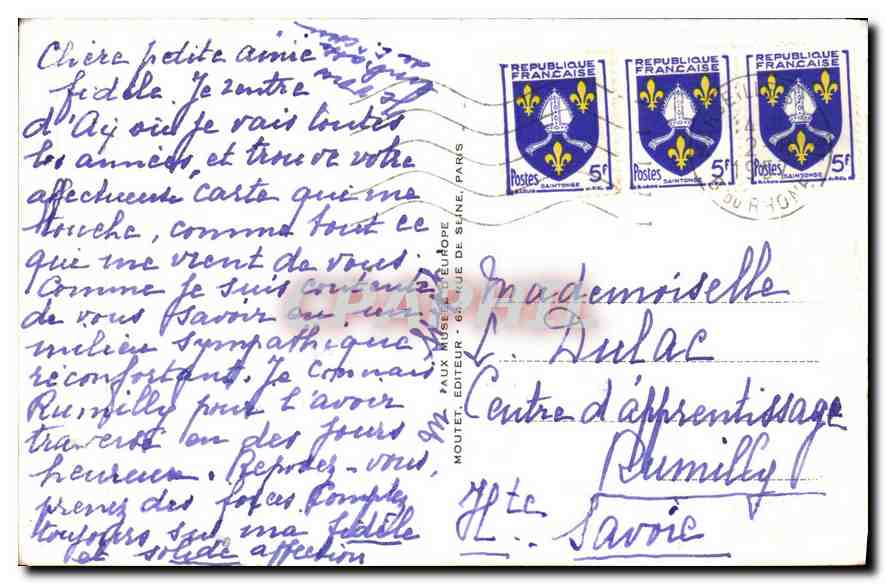 Chère petite amie
fidèle. Je rentre
d'Aÿ où je vais toutes
les années, et trouve votre
affectueuse carte que me
touche, comme tout ce
que me vient de vous.
Comme je suis contente
de vous savoir en un
milieu sympathique
réconfortant. Je connais
Rumilly pour l'avoir
traversé en des jours
heureux. Reposez-vous,
prenez des forces Comptez
toujours sur ma fidèle
et solide affection
MOUTET, EDITEUR - 64 RUE DE SEINE, PARIS
AUX MUSÉES D'EUROPE
CPAPHIL
REPUBLIQUE FRANÇAISE
Postes 5F
SAINTONGE
REPUBLIQUE FRANÇAISE
Postes 5F
SAINTONGE
REPUBLIQUE FRANÇAISE
Postes 5F
SAINTONGE
DU RHONE
Mademoiselle
L. Dulac
Centre d'apprentissage
Rumilly
Hte
Savoie